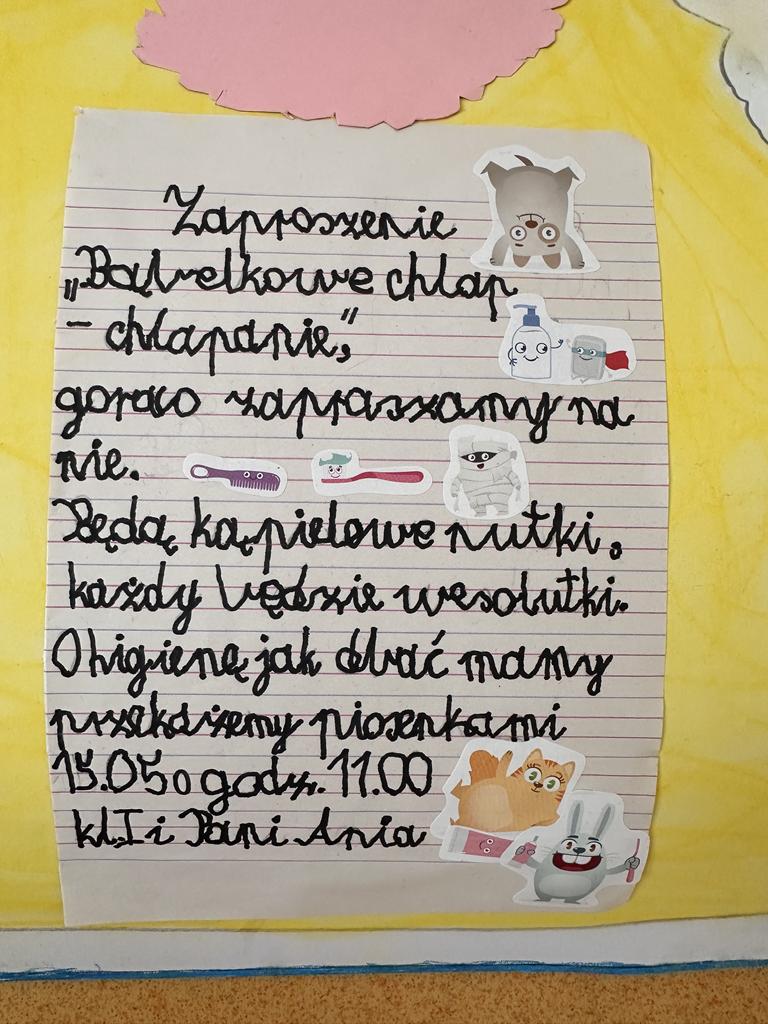 Zaproszenie
„Bąbelkowe chlap
- chlapanie",
gorąco zapraszamy na
nie.
Będą kąpielowe nutki,
każdy będzie wesolutki.
O higienę jak dbać mamy
przekażemy piosenkami
15.05 o godz. 11.00
kl.I i Pani Ania